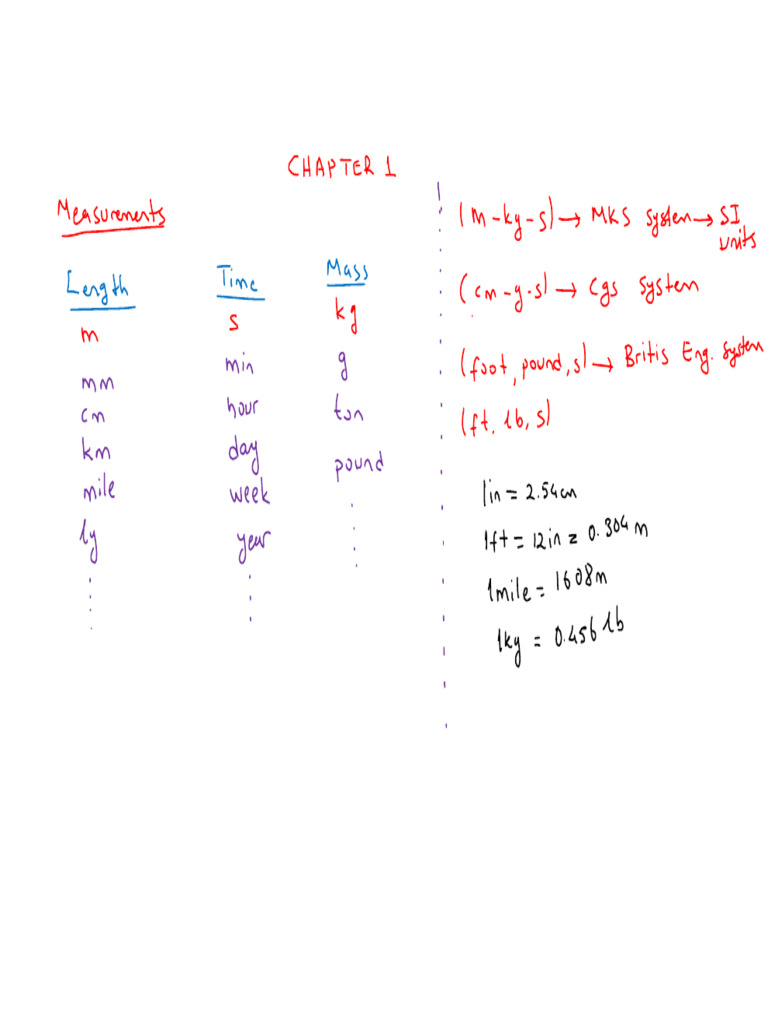 CHAPTER 1
Measurements
Length Time Mass
m s kg
mm min g
cm hour ton
km day pound
mile week
ly year
(m-kg-s) → MKS system → SI units
(cm-g-s) → cgs system
(foot, pound, s) → Britis Eng. system
(ft. lb, s)
1in = 2.54cm
1ft = 12in = 0.304 m
1mile = 1608m
1kg = 0.456 lb